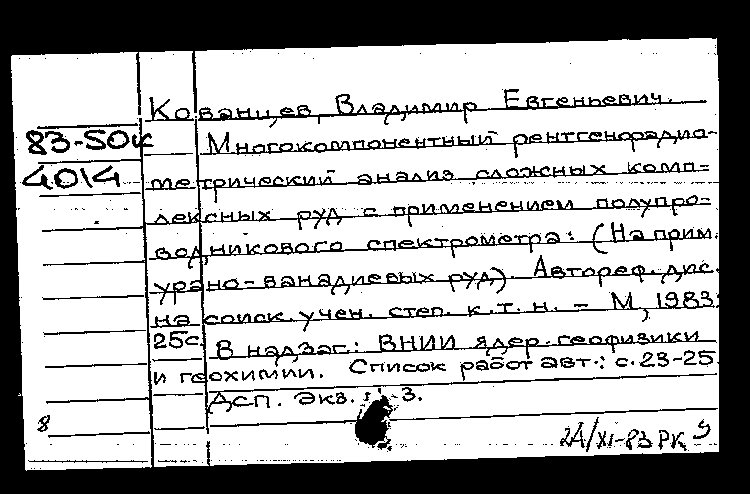 Кованцев, Владимир Евгеньевич.
83-5ОК Многокомпонентный рентгенорадио-
4014 метрический анализ сложных комп=
лексных руд с применением полупро=
водникового спектрометра: (На прим.
урано-ванадиевых руд). Автореф. дис.
на соиск. учен. степ. к.т.н. - М, 1983.
25с. В надзаг.: ВНИИ ядер. геофизики
и геохимии. Список работ авт.: с.23-25.
Дсп. Экз. 3.
8
24/XI-83 РК